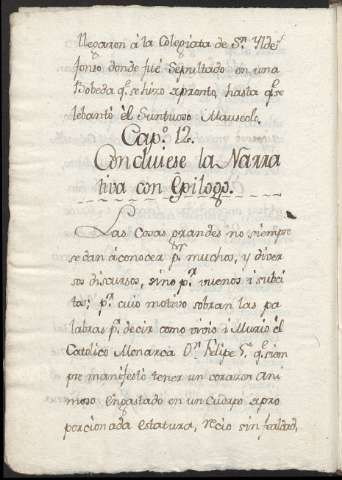 llegaron á la Colegiata de Sn. Ylde-
fonso donde fué Sepultado en una
Bobeda q.e se hizo apronto, hasta q.e se
lebantó él Suntuoso Mausoleo.
Cap.o 12.
Concluiese la Narra
tiva con Epilogo.
Las Cosas grandes no siempre
se dan áconocer p.r muchos, y diver
sos discursos, sino p.r buenos i subci
tos; p.r cuio motivo sobran las pa
labras p.a decir como vivio i Murio él
Catolico Monarca D.n Felipe 5.o q.e siem
pre manifestó tener un corazon ani
moso engastado en un Cuerpo apro
porcionada estatura, recio sin fealdad,